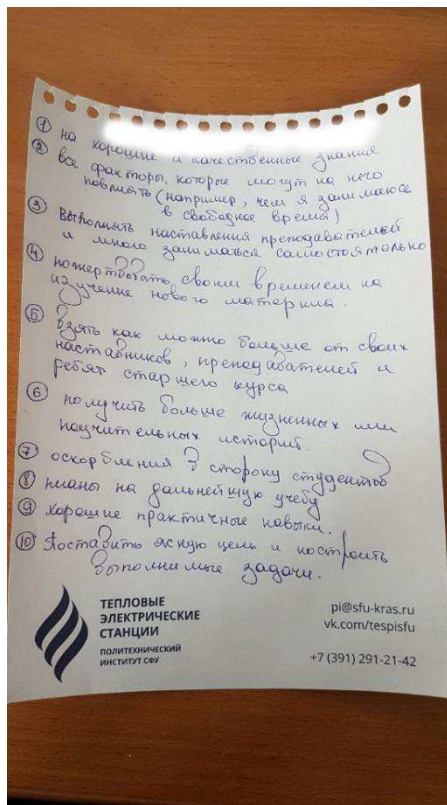 ① на хорошие и качественные знания
② все факторы, которые могут на него
повлиять (например, чем я занимаюсь
в свободное время)
③ выполнять наставления преподавателей
и много заниматься самостоятельно
④ пожертвовать своим временем на
изучение нового материла.
⑤ взять как можно больше от своих
наставников, преподавателей и
ребят старшего курса
⑥ получить больше жизненных или
поучительных историй.
⑦ оскорбления в сторону студентов
⑧ планы на дальнейшую учебу
⑨ хорошие практичные навыки.
⑩ Поставить ясную цель и построить
выполнимые задачи.
ТЕПЛОВЫЕ
ЭЛЕКТРИЧЕСКИЕ
СТАНЦИИ
ПОЛИТЕХНИЧЕСКИЙ
ИНСТИТУТ СФУ
pi@sfu-kras.ru
vk.com/tespisfu
+7 (391) 291-21-42